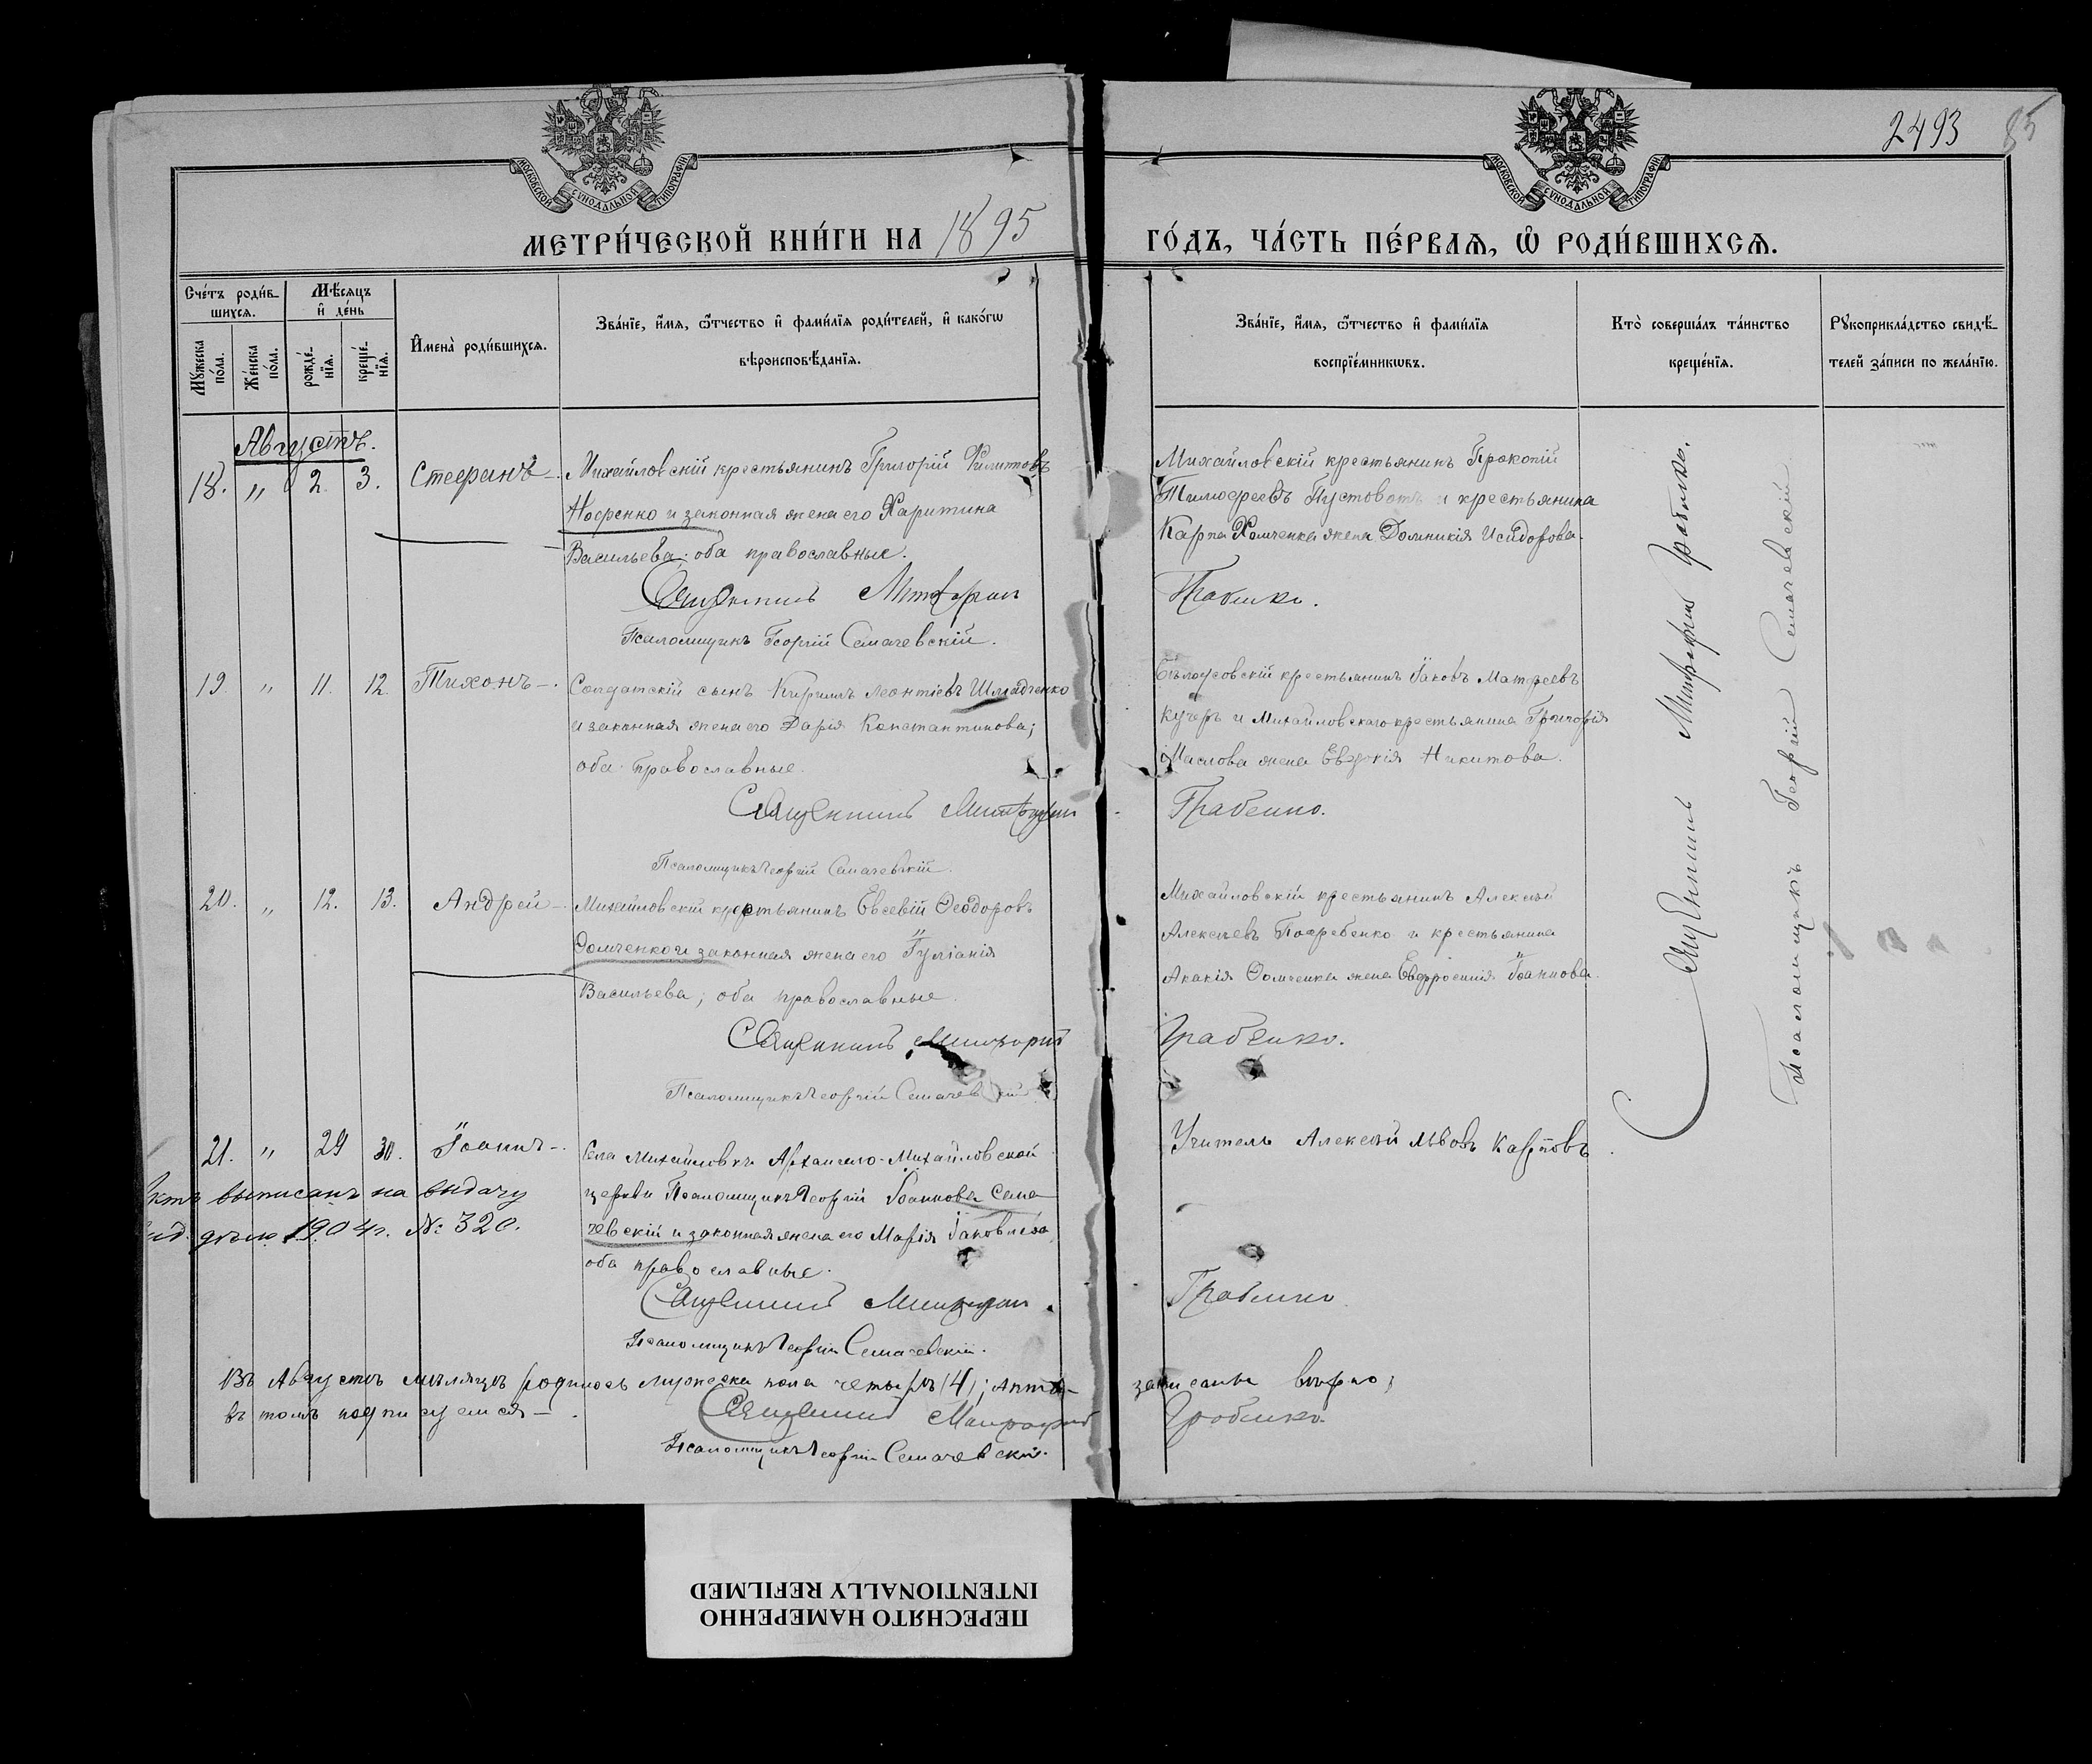 2493 85
МОСКОВСКОЙ СѴНОДАЛЬНОЙ ТИПОГРАФІИ
МОСКОВСКОЙ СѴНОДАЛЬНОЙ ТИПОГРАФІИ
МЕТРИ́ЧЕСКОЙ КНИ́ГИ НА 1895
ГО́ДЪ, ЧА́СТЬ ПЕ́РВАѦ, Ѡ҆ РОДИ́ВШИХСѦ.
Сче́тъ роди́в-
шихсѧ.
Мѣ́сѧцъ
и҆ де́нь
Мꙋ́жеска
по́ла.
Же́нска
по́ла.
рожде́-
нїѧ.
креще́-
нїѧ.
И҆мена̀ роди́вшихсѧ.
Зва́нїе, и҆́мѧ, ѻ҆́тчество и҆ фами́лїѧ роди́телей, и҆ како́гѡ
вѣроисповѣ́данїѧ.
Зва́нїе, и҆́мѧ, ѻ҆́тчество и҆ фами́лїѧ
воспрїе́мникѡвъ.
Кто̀ соверша́лъ та́инство
креще́нїѧ.
Рꙋкоприкла́дство свидѣ́-
телей за́писи по жела́нїю.
Августъ.
18. " 2. 3. Стефанъ -. Михайловскій крестьянинъ Григорій Филитовъ
Носенко и законная жена его Харитина
Васильева; оба православные.
Священникъ Митрофан
Псаломщикъ Георгій Семачевскій.
Михайловскій крестьянинъ Прокопій
Тимофеевъ Пустовотъ и крестьянина
Карпа Хомченка жена Домникія Исидорова.
Грабенко.
19. " 11. 12. Тихонъ -. Солдатскій сынъ Кириллъ Леонтіевъ
и законная жена его Дарія Константинова;
оба православные.
Священникъ Митрофан
Псаломщикъ Георгій Семачевскій.
Бѣлоусовскій крестьянинъ Іаковъ Матѳеевъ
Кучеръ и Михайловскаго крестьянина Григорія
Маслова жена Евдокія Никитова.
Грабенко.
20. " 12. 13. Андрей -. Михайловскій крестьянинъ Евсевій Ѳеодоровъ
Ѳомченко и законная жена его Іуліанія
Васильева; оба православные.
Священникъ Митрофан
Псаломщикъ Георгій Семачевскій
Михайловскій крестьянинъ Алексѣй
Алексѣевъ Погребенко и крестьянина
Акакія Ѳомченка жена Евфросинія Іоаннова.
Грабенко.
21. " 29 30. Іоаннъ -. Села Михайловки Архангело-Михайловской
церкви Псаломщикъ Георгій Іоанновъ Сема-
чевскій и законная жена его Марія Іаковлева
оба православные.
выписанъ на выдачу
1904 г. № 320.
Священникъ Митрофан
Псаломщикъ Георгій Семачевскій.
Учитель Алексѣй Львовъ Карповъ.
Грабенко
Въ Августѣ мѣсяцѣ родилось мужеска пола четыре (4); акты
записаны вѣрно;
въ томъ подписуемся -.
Священникъ Митрофан
Грабенко.
Псаломщикъ Георгій Семачевскій.
Священникъ Митрофан Грабенко.
Псаломщикъ Георгій Семачевскій
ПЕРЕСНЯТО НАМЕРЕННО
INTENTIONALLY REFILMED